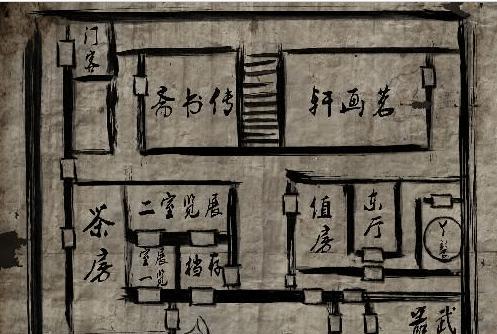 门客
斋书传
轩画茗
茶房
二室览展
室一
展览
档存
值房
东厅
器武